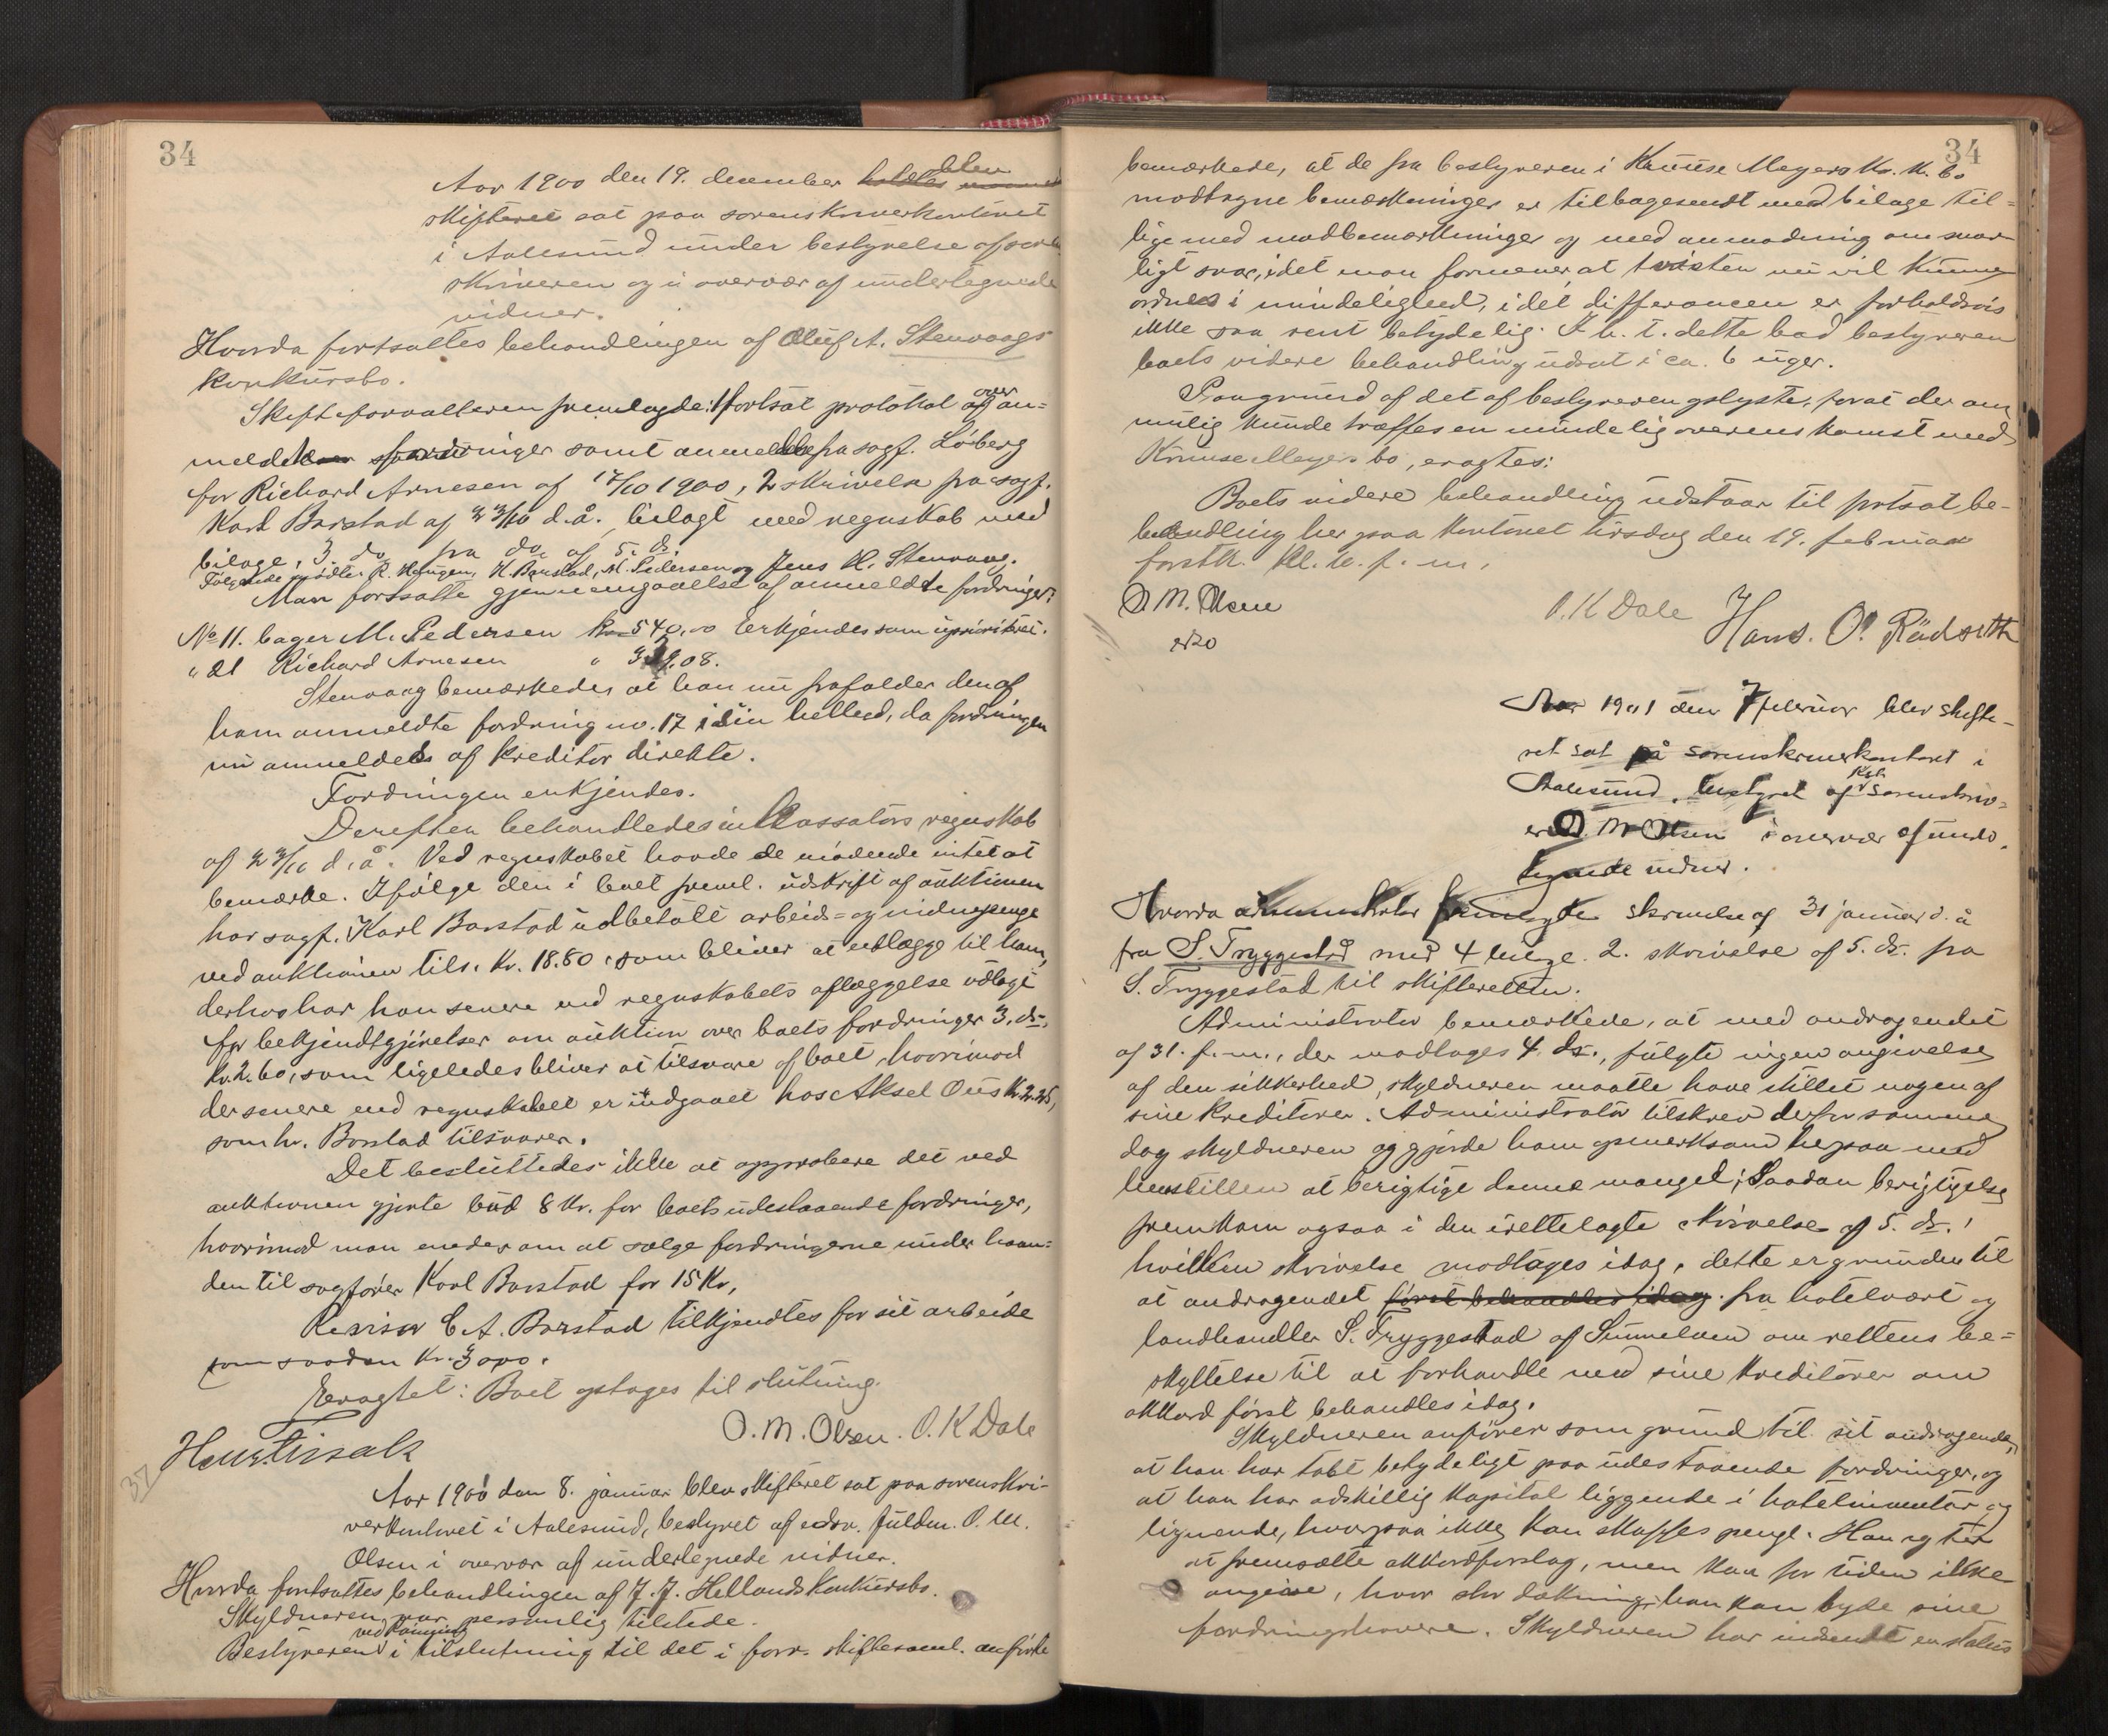 34
Aar 1900 den 19. december holdtes blev
skifteret sat paa sorenskriverkontoret
i Aalesund under bestyrelse af soren
skriveren og i overvær af undertegnede
vidner.
Hvorda fortsattes behandlingen af Oluf A. Stenvaags
konkursbo.
Skifteforvalteren fremlagde: 1 fortsat protokol over an=
meldte fordringer samt anmeldelse fra sagf. Løberg
for Richard Arnesen af 17/10 1900, 2 skrivelse fra sagf.
Karl Barstad af 23/10 d.å. bilagt med regnskab med
bilage, 3. do fra do af 5. ds.
Følgende mødte: R. Haugen, K. Barstad, M. Pedersen og Jens H. Stenvaag.
Man fortsatte gjennemgaaelse af anmeldte fordringer:
No 11. bager M. Pedersen Kr 540,00 Erkjendes som uprioriteret.
" 21 Richard Arnesen " 339.08.
Stenvaag bemærkede at han nu frafalder den af
ham anmeldte fordring no. 17 i sin helhed, da fordringen
nu anmeldes af kreditor direkte.
Fordringen erkjendes.
Derefter behandledes inkassators regnskab
af 23/10 d.å. Ved regnskabet havde de mødende intet at
bemærke. Ifølge den i boet freml. udskrift af auktionen
har sagf. Karl Barstad udbetalt arbeids= og vidnepenge
ved auktionen tils. Kr. 18.80, som bliver at utlægge til ham,
derhos har han senere end regnskabets aflæggelse udlagt
for bekjendtgjørelser om auktion over boets fordringer 3. ds.
Kr. 2.60, som ligeledes bliver at tilsvare af boet, hvorimod
der senere end regnskabet er indgaaet hos Aksel Øus Kr. 2.25,
som hr. Barstad tilsvarer.
Det besluttedes ikke at approbere det ved
auktionen gjorte bud 8 Kr. for boets udestaaende fordringer,
hvorimod man enedes om at sælge fordringerne under haan=
den til sagfører Karl Barstad for 15 Kr,
Revisor C. A. Barstad tilkjendtes for sit arbeide
som saadan Kr. 30,00.
Eragtet: Boet optages til slutning.
O. M. Olsen. O. K Dale
37
Aar 1901 den 8. januar blev skifteret sat paa sorenskri-
verkontoret i Aalesund, bestyret af edsv. fuldm. O. M.
Olsen i overvær af undertegnede vidner.
Hvorda fortsattes behandlingen af J. J. Hellands konkursbo.
Skyldneren var personlig tilstede.
Bestyreren i tilslutning til det i forr. skiftesaml. anførte
34
bemærkede, at de fra bestyreren i Kruuse Meyers Kr. K. bo
modtagne bemærkninger er tilbagesendt med bilage til=
lige med modbemærkninger og med anmodning om snar-
ligt svar, idet man formener, at tvisten nu vil kunne
ordnes i mindelighed, idet differancen er forholdsvis
ikke saa rent betydelig. I h. t. dette bad bestyreren
boets videre behandling udsat i ca. 6 uger.
Paagrund af det af bestyreren oplyste, forat der om
mulig kunde træffes en mindelig overenskomst med
Kruuse Meyers bo, eragtes:
Boets videre behandling udstaar til fortsat be-
handling her paa kontoret tirsdag den 19. februar
førstk. Kl. 10. f. m.
O M. Olsen
O. K Dale Hans. O. Rødseth
Aar 1901 den 7 februar blev skifte-
ret sat på sorenskriverkontoret i
Aalesund, bestyret af Kst. sorenskriv=
er O. M Olsen i overvær af under
tegnede vidner.
Hvorda administrator fremlagde skrivelse af 31 januar d. å
fra S. Tryggestad med 4 bilage. 2. skrivelse af 5. ds. fra
S. Tryggestad til skifteretten.
Administrator bemærkede, at med andragendet
af 31. f. m., der modtoges 4. ds., fulgte ingen angivelse
af den sikkerhed, skyldneren maatte have stillet nogen af
sine kreditorer. Administrator tilskrev derfor samme
dag skyldneren og gjorde ham opmerksom herpaa med
henstillen at berigtige denne mangel; Saadan berigtigelse
fremkom ogsaa i den irettelagte skrivelse af 5. ds.,
hvilken skrivelse modtages idag, dette er grunden til
at andragendet først behandles idag. fra hotelvært og
landhandler S. Tryggestad af Sunnelven om rettens be=
skyttelse til at forhandle med sine kreditorer om
akkord først behandles idag.
Skyldneren anfører som grund til sit andragende,
at han har tabt betydeligt paa udestaaende fordringer, og
at han har adskillig kapital liggende i hotelinventar og
lignende, hvorpaa ikke kan skaffes penge. Han agter
at fremsætte akkordforslag, men kan for tiden ikke
angive, hvor stor dækning, han kan byde sine
fordringshavere. Skyldneren har indsendt en status